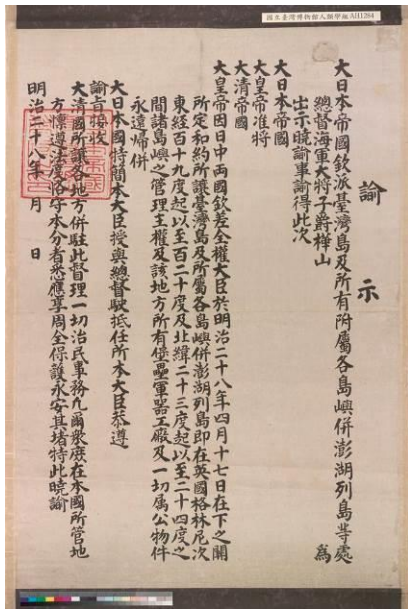 國立臺灣博物館人類學組AH1284
諭示
大日本帝國欽派臺灣島及所有附屬各島嶼併澎湖列島等處
總督海軍大將子爵樺山 為
出示曉諭事諭得此次
大日本帝國
大皇帝准將
大清帝國
大皇帝因日中両國欽差全權大臣於明治二十八年四月十七日在下之關
所定和約所讓臺灣島及所屬各島嶼併澎湖列島即在英國格林尼次
東經百十九度起以至百二十度及北緯二十三度起以至二十四度之
間諸島嶼之管理主權及該地方所有堡壘軍器工廠及一切屬公物件
永遠歸併
大日本國特簡本大臣授與總督駛抵任所本大臣恭遵
諭旨接收
大清國所讓各地方併駐此督理一切治民事務凡爾眾庶在本國所管地
方懍遵法度恪守本分者悉應享周全保護永安其堵特此曉諭
明治二十八年 月 日